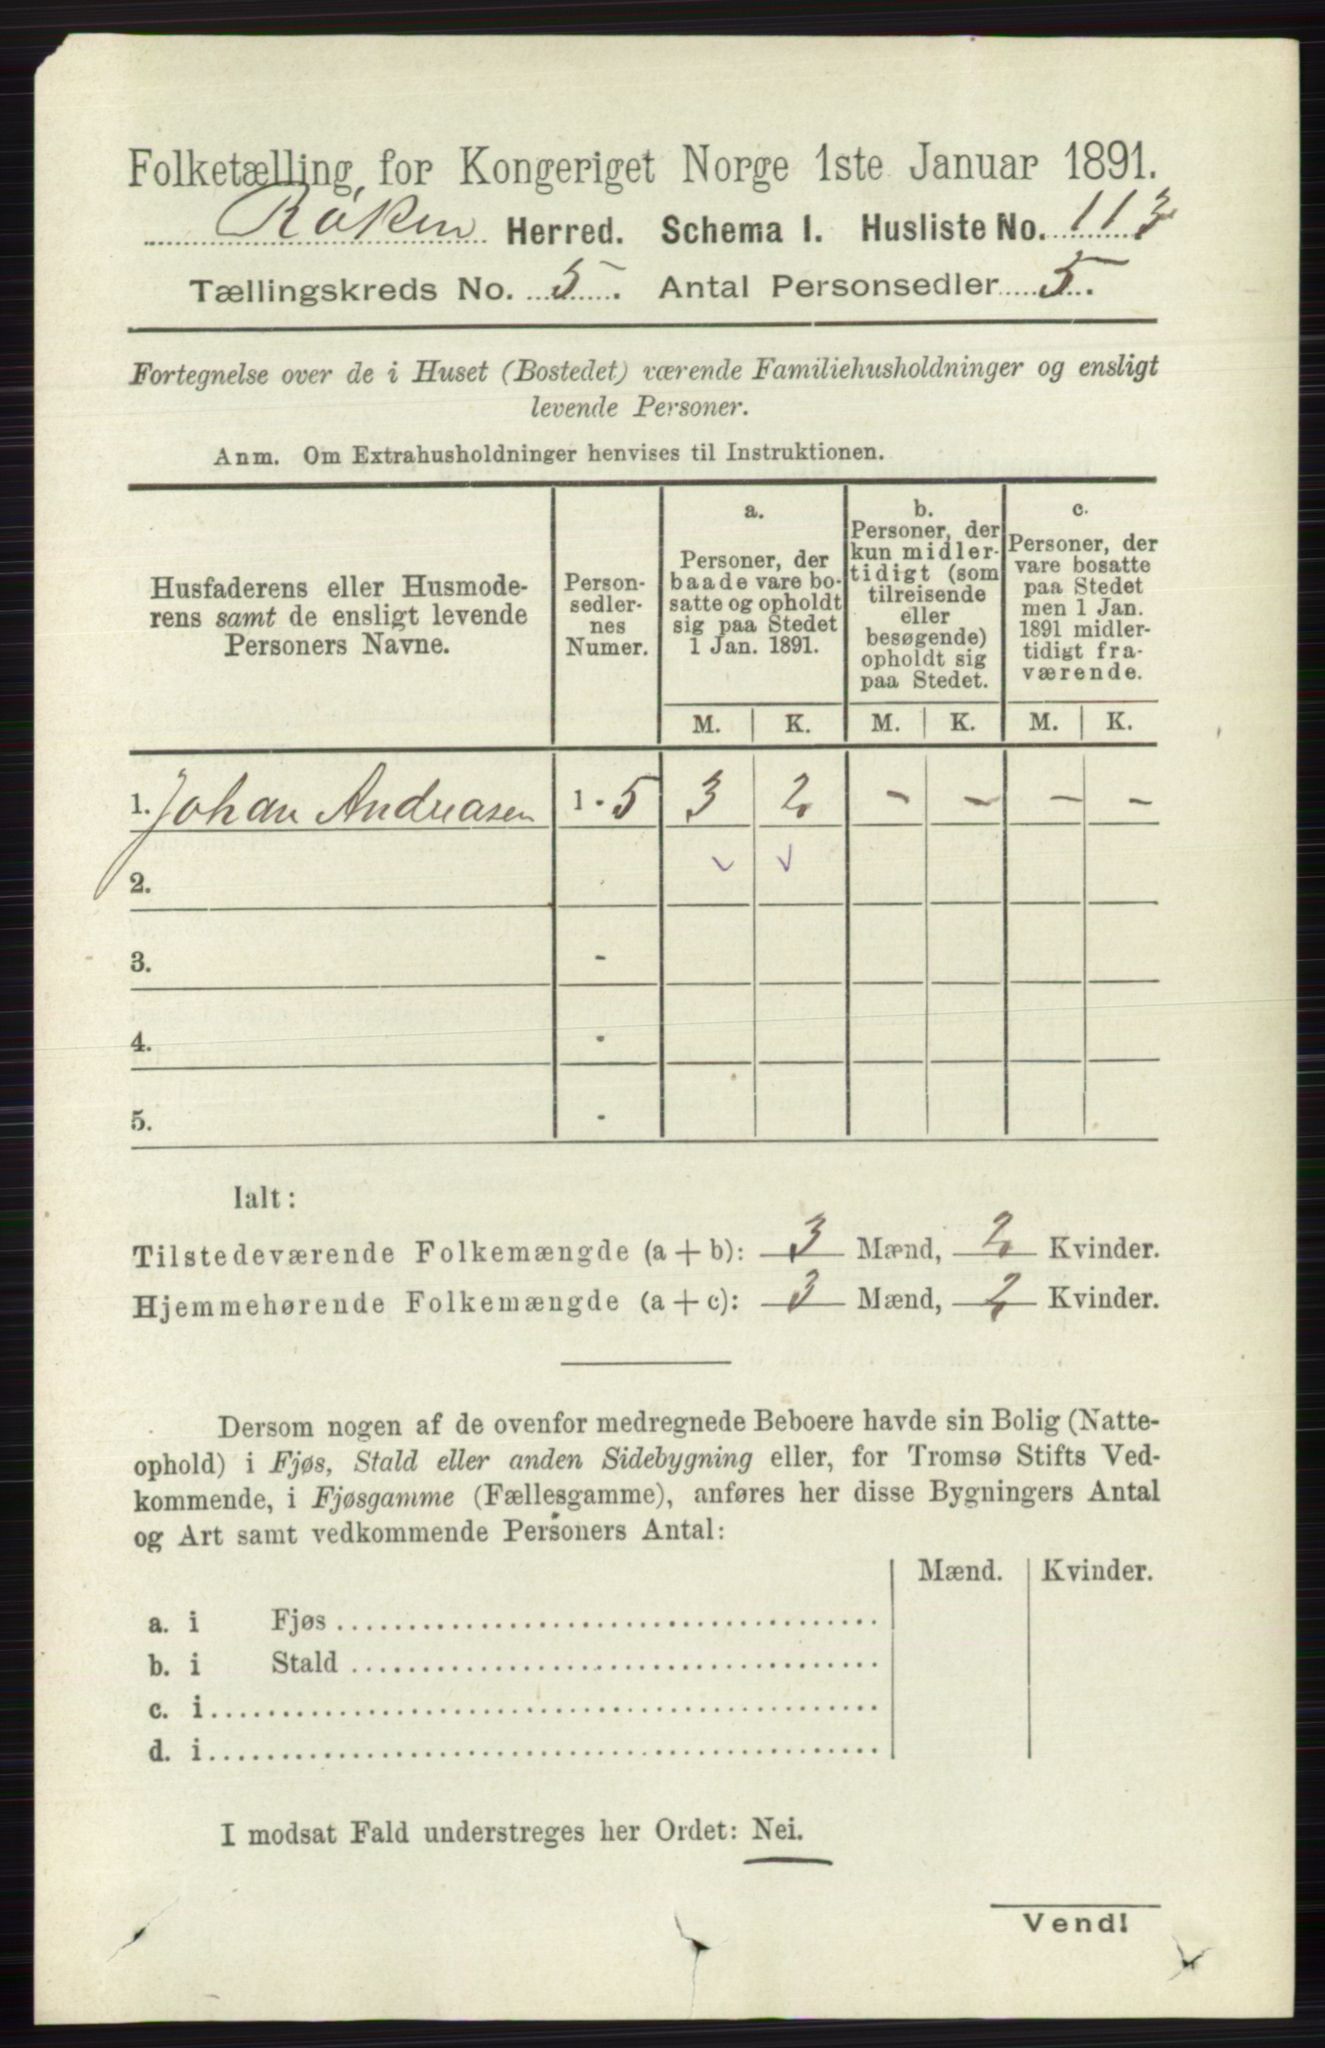 Folketælling for Kongeriget Norge 1ste Januar 1891.
Röken Herred. Schema I. Husliste No. 113
Tællingskreds No. 5. Antal Personsedler 5.
Fortegnelse over de i Huset (Bostedet) værende Familiehusholdninger og ensligt
levende Personer.
Anm. Om Extrahusholdninger henvises til Instruktionen.
Husfaderens eller Husmode-
rens samt de ensligt levende
Personers Navne.
Person-
sedler-
nes
Numer.
a.
Personer, der
baade vare bo-
satte og opholdt
sig paa Stedet
1 Jan. 1891.
b.
Personer, der
kun midler-
tidigt (som
tilreisende
eller
besøgende)
opholdt sig
paa Stedet.
c.
Personer, der
vare bosatte
paa Stedet
men 1 Jan.
1891 midler-
tidigt fra-
værende.
M. K. M. K. M. K.
1. Johan Andreasen 1 - 5 3 2 - - - -
2.
3. -
4. -
5. -
Ialt:
Tilstedeværende Folkemængde (a + b): 3 Mænd, 2 Kvinder.
Hjemmehørende Folkemængde (a + c): 3 Mænd, 2 Kvinder.
Dersom nogen af de ovenfor medregnede Beboere havde sin Bolig (Natte-
ophold) i Fjøs, Stald eller anden Sidebygning eller, for Tromsø Stifts Ved-
kommende, i Fjøsgamme (Fællesgamme), anføres her disse Bygningers Antal
og Art samt vedkommende Personers Antal:
Mænd. Kvinder.
a. i Fjøs
b. i Stald
c. i
d. i
I modsat Fald understreges her Ordet: Nei.
Vend!